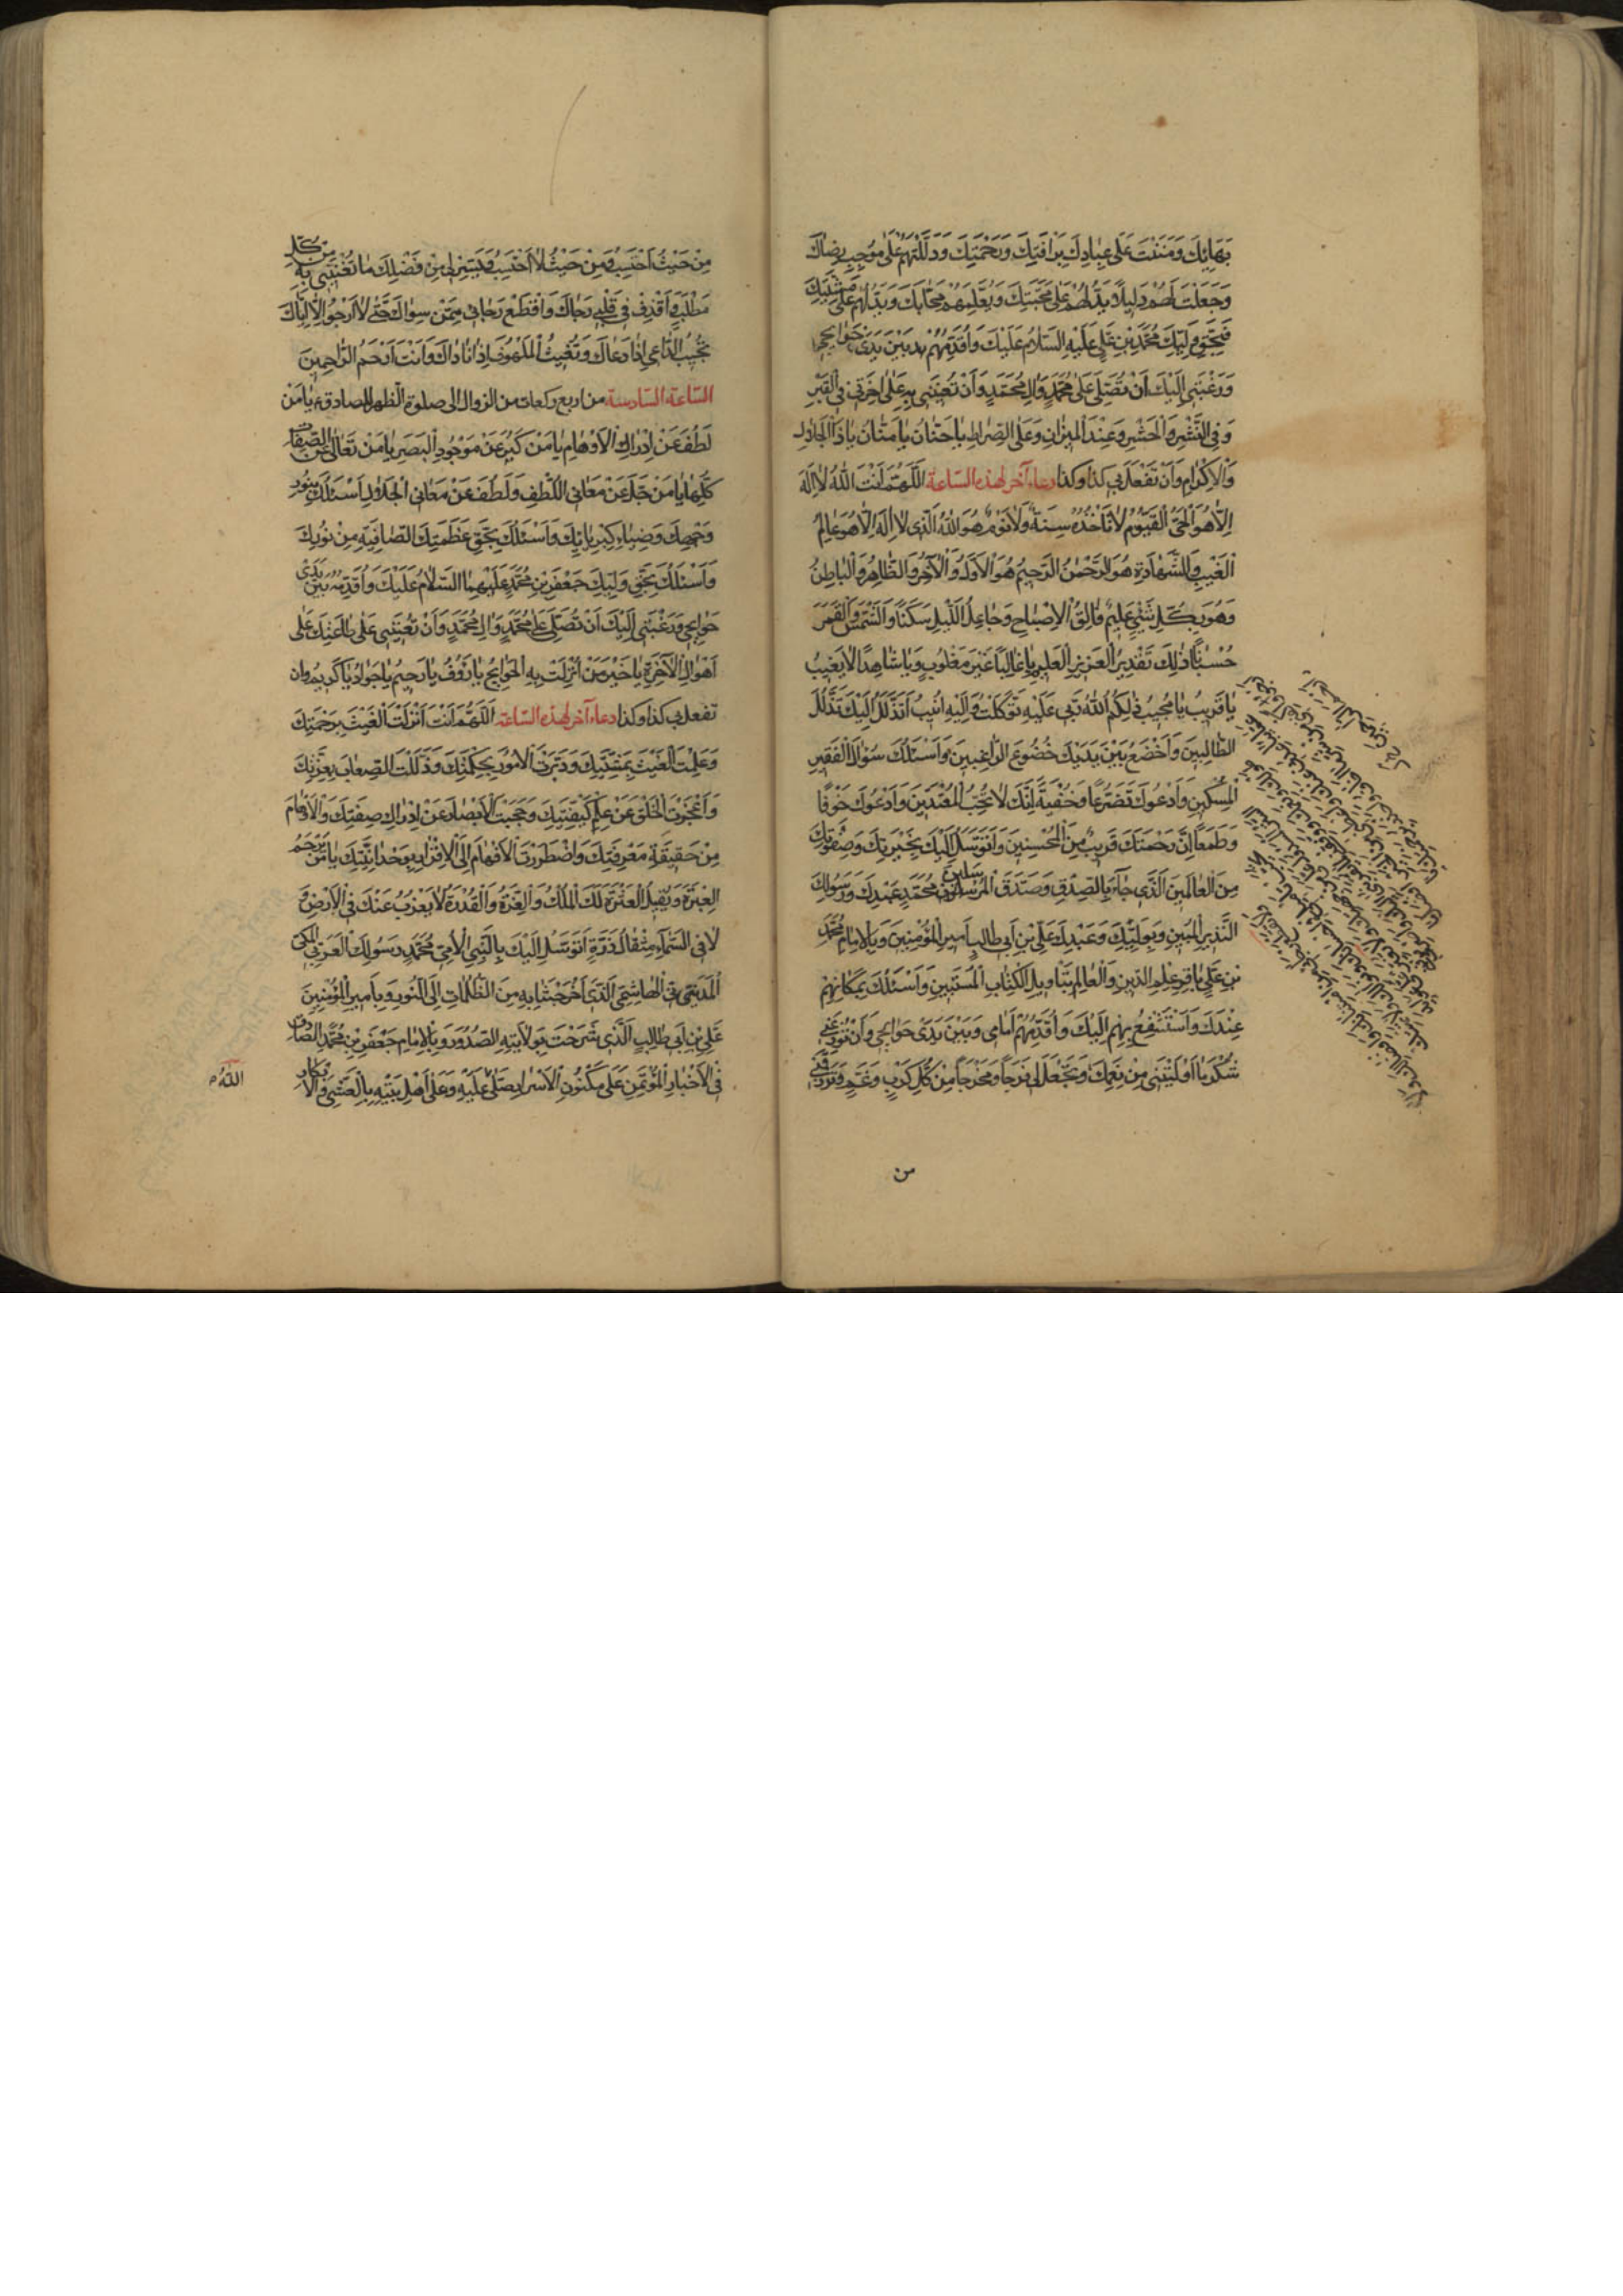 بَهَائِكَ وَمَنَنْتَ عَلَى عِبَادِكَ بِرَافَتِكَ وَرَحْمَتِكَ وَدَلَلْتَهُمْ عَلَى مُوجِبِ رِضَاكَ
وَجَعَلْتَ لَهُمْ دَلِيلًا يَدُلُّهُمْ عَلَى مَحَبَّتِكَ وَيُعَلِّمُهُمْ مَحَابَّكَ وَيَدُلُّهُمْ عَلَى مَشِيَّتِكَ
فَبِحَقِّ وَلِيِّكَ مُحَمَّدِ بْنِ عَلِيٍّ عَلَيْهِ السَّلَامُ عَلَيْكَ وَاُقَدِّمُهُمْ بَيْنَ يَدَيْ حَوَائِجِي
وَرَغْبَتِي اِلَيْكَ اَنْ تُصَلِّيَ عَلَى مُحَمَّدٍ وَآلِ مُحَمَّدٍ وَاَنْ تُعِينَنِي بِهِ عَلَى آخِرَتِي فِي الْقَبْرِ
وَفِي النَّشْرِ وَالْحَشْرِ وَعِنْدَ الْمِيزَانِ وَعَلَى الصِّرَاطِ يَا حَنَّانُ يَا مَنَّانُ يَا ذَا الْجَلَالِ
وَالْاِكْرَامِ وَاَنْ تَفْعَلَ بِي كذا وكذا دعاء آخر لهذه الساعة اَللَّهُمَّ اَنْتَ اللهُ لَا اِلَهَ
اِلَّا هُوَ الْحَيُّ الْقَيُّومُ لَا تَأْخُذُهُ سِنَةٌ وَلَا نَوْمٌ هُوَ اللهُ الَّذِي لَا اِلَهَ اِلَّا هُوَ عَالِمُ
الْغَيْبِ وَالشَّهَادَةِ هُوَ الرَّحْمٰنُ الرَّحِيمُ هُوَ الْاَوَّلُ وَالْآخِرُ وَالظَّاهِرُ وَالْبَاطِنُ
وَهُوَ بِكُلِّ شَيْءٍ عَلِيمٌ فَالِقُ الْاِصْبَاحِ وَجَاعِلُ اللَّيْلِ سَكَنًا وَالشَّمْسِ وَالْقَمَرَ
حُسْبَانًا ذٰلِكَ تَقْدِيرُ الْعَزِيزِ الْعَلِيمِ يَا غَالِبًا غَيْرَ مَغْلُوبٍ وَيَا شَاهِدًا لَا يَغِيبُ
يَا قَرِيبُ يَا مُجِيبُ ذٰلِكُمُ اللهُ رَبِّي عَلَيْهِ تَوَكَّلْتُ وَاِلَيْهِ اُنِيبُ اَتَذَلَّلُ اِلَيْكَ تَذَلُّلَ
الطَّالِبِينَ وَاَخْضَعُ بَيْنَ يَدَيْكَ خُضُوعَ الرَّاغِبِينَ وَاَسْئَلُكَ سُؤَالَ الْفَقِيرِ
الْمِسْكِينِ وَاَدْعُوكَ تَضَرُّعًا وَخُفْيَةً اِنَّكَ لَا تُحِبُّ الْمُعْتَدِينَ وَاَدْعُوكَ خَوْفًا
وَطَمَعًا اِنَّ رَحْمَتَكَ قَرِيبٌ مِنَ الْمُحْسِنِينَ وَاَتَوَسَّلُ اِلَيْكَ بِخِيَرَتِكَ وَصَفْوَتِكَ
مِنَ الْعَالَمِينَ الَّذِي جَاءَ بِالصِّدْقِ وَصَدَّقَ الْمُرْسَلِينَ مُحَمَّدٍ عَبْدِكَ وَرَسُولِكَ
النَّذِيرِ الْمُبِينِ وَبِوَلِيِّكَ وَعَبْدِكَ عَلِيِّ بْنِ اَبِي طَالِبٍ اَمِيرِ الْمُؤْمِنِينَ وَبِالْاِمَامِ مُحَمَّدِ
بْنِ عَلِيٍّ بَاقِرِ عِلْمِ الدِّينِ وَالْعَالِمِ بِتَأْوِيلِ الْكِتَابِ الْمُسْتَبِينِ وَاَسْئَلُكَ بِمَكَانِهِمْ
عِنْدَكَ وَاَسْتَشْفِعُ بِهِمْ اِلَيْكَ وَاُقَدِّمُهُمْ اَمَامِي وَبَيْنَ يَدَيْ حَوَائِجِي وَاَنْ تُوزِعَنِي
شُكْرَ مَا اَوْلَيْتَنِي مِنْ نِعَمِكَ وَتَجْعَلَ لِي فَرَجًا وَمَخْرَجًا مِنْ كُلِّ كَرْبٍ وَغَمٍّ وَتَرْزُقَنِي
من
مِنْ حَيْثُ اَحْتَسِبُ وَمِنْ حَيْثُ لَا اَحْتَسِبُ وَيَسِّرْ لِي مِنْ فَضْلِكَ مَا تُغْنِينِي بِهِ مِنْ كُلِّ
مَطْلَبٍ وَاقْذِفْ فِي قَلْبِي رَجَاكَ وَاقْطَعْ رَجَائِي مِمَّنْ سِوَاكَ حَتَّى لَا اَرْجُوَ اِلَّا اِيَّاكَ
تُجِيبُ الدَّاعِيَ اِذَا دَعَاكَ وَتُغِيثُ الْمَلْهُوفَ اِذَا نَادَاكَ وَاَنْتَ اَرْحَمُ الرَّاحِمِينَ
الساعة السادسة من اربع ركعات من الزوال الى صلوة الظهر للصادق ع يَا مَنْ
لَطُفَ عَنْ اِدْرَاكِ الْاَوْهَامِ يَا مَنْ كَبُرَ عَنْ مَوْجُودِ الْبَصَرِ يَا مَنْ تَعَالَى عَنِ الصِّفَاتِ
كُلِّهَا يَا مَنْ جَلَّ عَنْ مَعَانِي اللُّطْفِ وَلَطُفَ عَنْ مَعَانِي الْجَلَالِ اَسْئَلُكَ بِنُورِ
وَجْهِكَ وَضِيَاءِ كِبْرِيَائِكَ وَاَسْئَلُكَ بِحَقِّ عَظَمَتِكَ الصَّافِيَةِ مِنْ نُورِكَ
وَاَسْئَلُكَ بِحَقِّ وَلِيِّكَ جَعْفَرِ بْنِ مُحَمَّدٍ عَلَيْهِمَا السَّلَامُ عَلَيْكَ وَاُقَدِّمُهُ بَيْنَ يَدَيْ
حَوَائِجِي وَرَغْبَتِي اِلَيْكَ اَنْ تُصَلِّيَ عَلَى مُحَمَّدٍ وَآلِ مُحَمَّدٍ وَاَنْ تُعِينَنِي عَلَى طَاعَتِكَ عَلَى
اَهْوَالِ الْآخِرَةِ يَا خَيْرَ مَنْ اُنْزِلَتْ بِهِ الْحَوَائِجُ يَا رَؤُفُ يَا رَحِيمُ يَا جَوَادُ يَا كَرِيمُ وان
تفعل بي كذا وكذا دعاء آخر لهذه الساعة اَللَّهُمَّ اَنْتَ اَنْزَلْتَ الْغَيْثَ بِرَحْمَتِكَ
وَعَلِمْتَ الْغَيْبَ بِمَشِيَّتِكَ وَدَبَّرْتَ الْاُمُورَ بِحِكْمَتِكَ وَذَلَّلْتَ الصِّعَابَ بِعِزَّتِكَ
وَاَعْجَزْتَ الْخَلْقَ عَنْ عِلْمِ كَيْفِيَّتِكَ وَحَجَبْتَ الْاَبْصَارَ عَنْ اِدْرَاكِ صِفَتِكَ وَالْاَوْهَامَ
مِنْ حَقِيقَةِ مَعْرِفَتِكَ وَاضْطَرَرْتَ الْاَفْهَامَ اِلَى الْاِقْرَارِ بِوَحْدَانِيَّتِكَ يَا مَنْ يَرْحَمُ
الْعَبْرَةَ وَيُقِيلُ الْعَثْرَةَ لَكَ الْمُلْكُ وَالْعِزَّةُ وَالْقُدْرَةُ لَا يَعْزُبُ عَنْكَ فِي الْاَرْضِ وَ
لَا فِي السَّمَاءِ مِثْقَالُ ذَرَّةٍ اَتَوَسَّلُ اِلَيْكَ بِالنَّبِيِّ الْاُمِّيِّ مُحَمَّدٍ رَسُولِكَ الْعَرَبِيِّ الْمَكِّيِّ
الْمَدَنِيِّ الْهَاشِمِيِّ الَّذِي اَخْرَجْتَنَا بِهِ مِنَ الظُّلُمَاتِ اِلَى النُّورِ وَبِاَمِيرِ الْمُؤْمِنِينَ
عَلِيِّ بْنِ اَبِي طَالِبٍ الَّذِي شَرَحْتَ بِوِلَايَتِهِ الصُّدُورَ وَبِالْاِمَامِ جَعْفَرِ بْنِ مُحَمَّدٍ الصَّادِقِ
فِي الْاَخْبَارِ الْمُؤْتَمَنِ عَلَى مَكْنُونِ الْاَسْرَارِ صَلَّى عَلَيْهِ وَعَلَى اَهْلِ بَيْتِهِ بِالْعَشِيِّ وَالْاِبْكَارِ
اللهُ